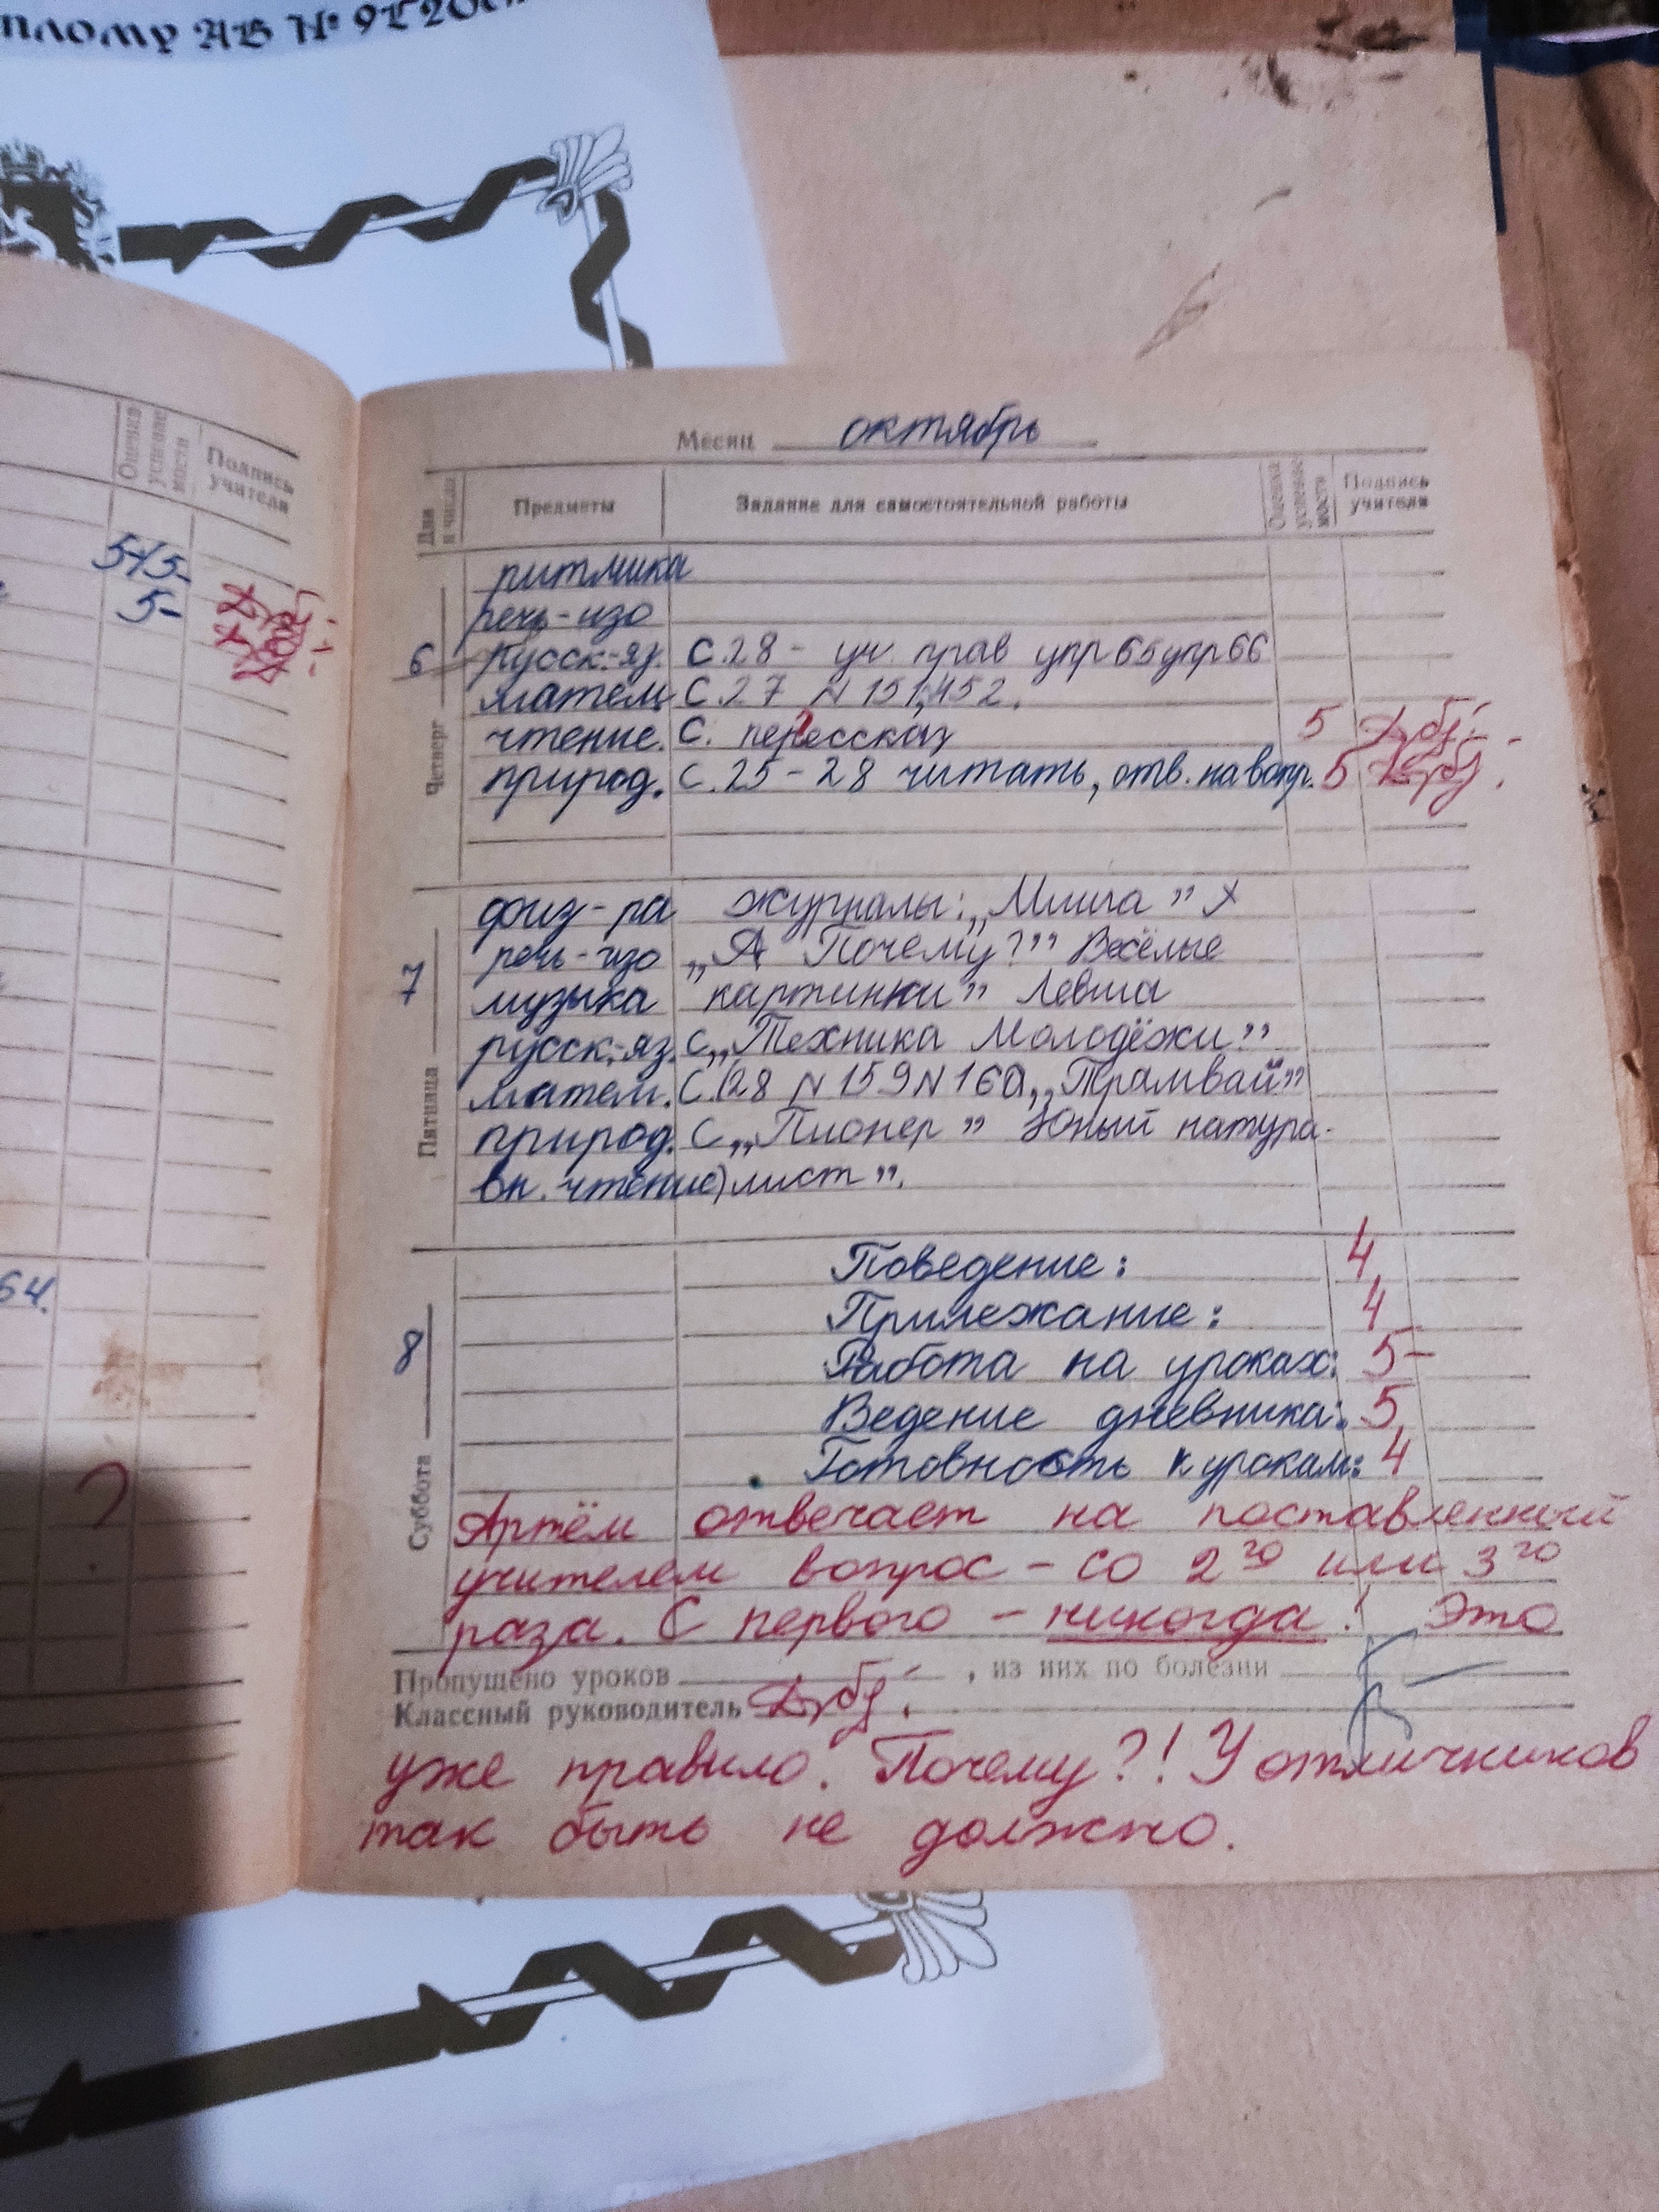 АВ № 9
Оценка успевае мости
Подпись учителя
5-
64.
Месяц октябрь
Дни и числа
Предметы
Задание для самостоятельной работы
Оценка успевае мости
Подпись учителя
6 Четверг
ритмика
речь-изо
русск.-яз. с.28 - уч. прав упр 65 упр 66
матем. с.27 N 151,152.
чтение. с. перессказ 5
природ. с.25-28 читать, отв. на вопр. 5
7 Пятница
физ-ра журналы: „Миша”
речь-изо „А Почему?” Весёлые
музыка картинки” Левша
русск.-яз. с „Техника Молодёжи”
матем. с.28 N 159 N 160 „Трамвай”
природ. с „Пионер” Юный натура-
вн. чтение) лист”.
8 Суббота
Поведение: 4
Прилежание: 4
Работа на уроках: 5-
Ведение дневника: 5
Готовность к урокам: 4
Артём отвечает на поставленный
учителем вопрос - со 2го или 3го
раза. С первого - никогда! Это
Пропущено уроков , из них по болезни
Классный руководитель
уже правило. Почему?! У отличников
так быть не должно.